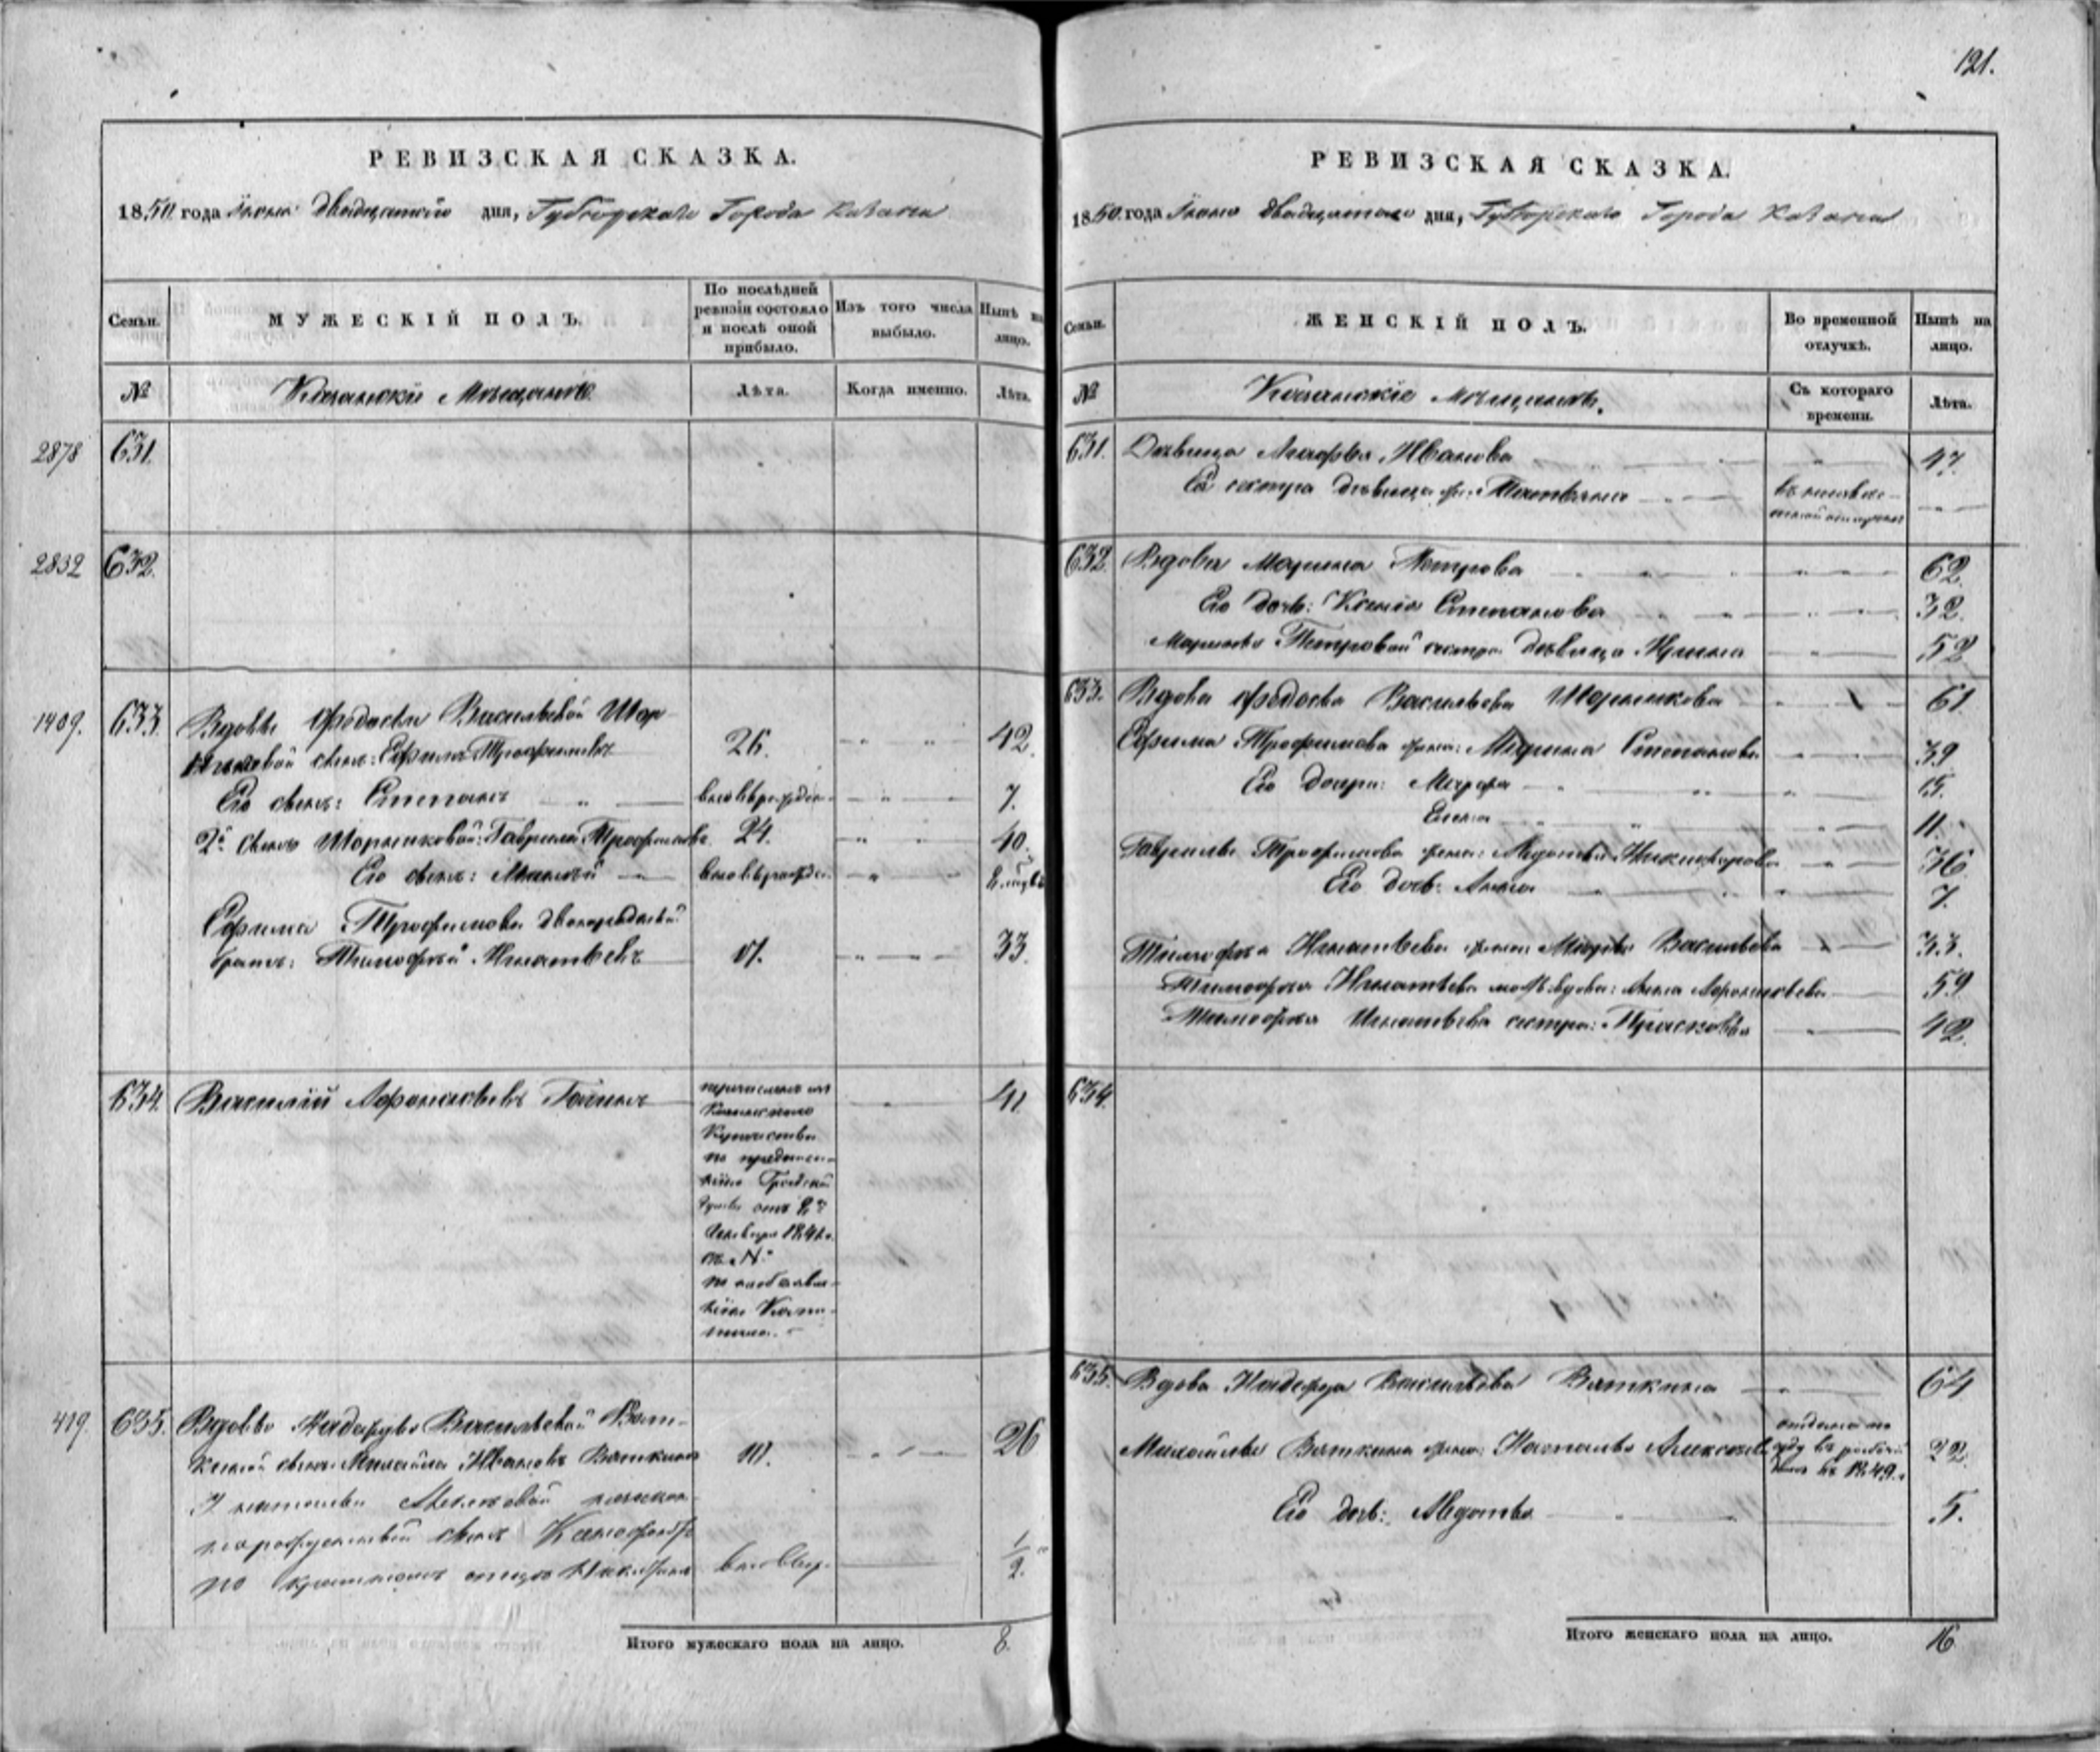 121.
РЕВИЗСКАЯ СКАЗКА.
1850 года Іюня двадцатаго дня, Губернскаго Города Казани
Семьи.
МУЖЕСКІЙ ПОЛЪ.
По послѣдней ревизіи состояло и послѣ оной прибыло.
Изъ того числа выбыло.
Нынѣ на лицо.
№
Казанскіе Мѣщане
Лѣта.
Когда именно.
Лѣта.
2878 631.
2832 632.
1409. 633. Вдовы Федосьи Васильевой Шор-
никовой сынъ: Ефимъ Трофимовъ 26. 42.
Его сынъ: Степанъ 7.
2й сынъ Шорниковой: Гаврила Трофимовъ 24. 40.
Его сынъ:
Ефима Трофимова двоюродный
братъ: Тимофѣй Игнатьевъ 17. 33.
634. Василій Афонасьевъ 41
перечисленъ изъ
Казанскаго
Купечества
по предписа-
нію Градской
Думы отъ
Генваря
за №
по необъявле-
нію Капи-
тала.
419. 635. Вдовы Надежды Васильевой Вят-
киной сынъ Михайла Ивановъ Вяткинъ 10. 26
незаконно-
рожденный сынъ
по крестному отцу 1/2
Итого мужескаго пола на лицо. 8.
РЕВИЗСКАЯ СКАЗКА.
1850 года Іюня двадцатаго дня, Губернскаго Города Казани
Семьи.
ЖЕНСКІЙ ПОЛЪ.
Во временной отлучкѣ.
Нынѣ на лицо.
№
Казанскіе мѣщане.
Съ котораго времени.
Лѣта.
631. Дѣвица Марфа Иванова 47.
Ея сестра дѣвица Татьяна
632. Вдова Марина Петрова 62.
Ея дочь: Ксенія Степанова 32.
Марины Петровой сестра дѣвица Ирина 52
633. Вдова Федосья Васильева Шорникова 61.
Ефима Трофимова жена: Марина Степанова 39
Его дочери: Марфа 15.
Елена 11.
Гаврилы Трофимова жена: Авдотья Никифорова 36
Его дочь: Анна 7.
Тимофѣя Игнатьева жена: Марья Васильева 33.
Тимофѣя Игнатьева мать вдова: Анна Афонасьева 59
Тимофѣя Игнатьева сестра: Прасковья 42.
634.
635. Вдова Надежда Васильева Вяткина 64
Михайлы Вяткина жена: Наталья Алексѣева 22.
Его дочь: Авдотья 5.
Итого женскаго пола на лицо. 16